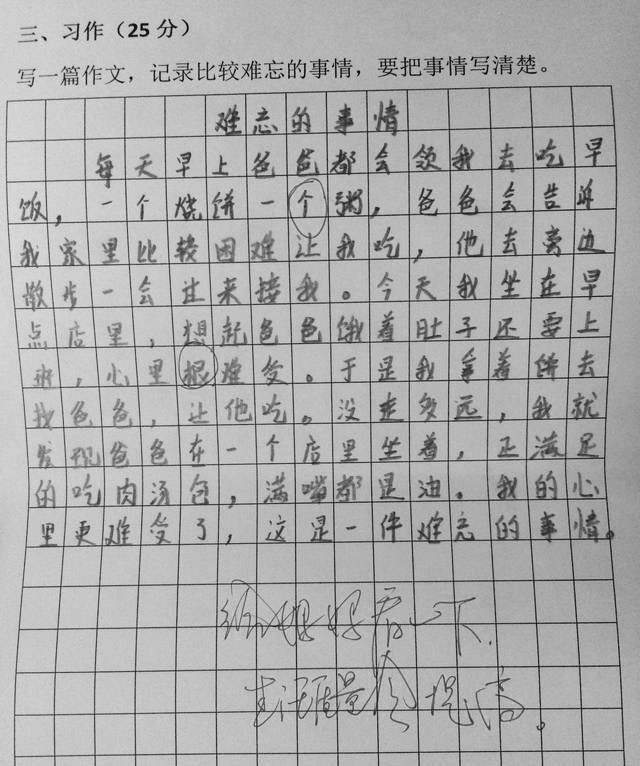 三、习作（25分）
写一篇作文，记录比较难忘的事情，要把事情写清楚。
难忘的事情
每天早上爸爸都会领我去吃早
饭，一个烧饼一个粥，爸爸会告诉
我家里比较困难让我吃，他去旁边
散步一会过来接我。今天我坐在早
点店里，想起爸爸饿着肚子还要上
班，心里根难受。于是我拿着饼去
找爸爸，让他吃。没走多远，我就
发现爸爸在一个店里坐着，正满足
的吃肉汤包，满嘴都是油。我的心
里更难受了，这是一件难忘的事情。
给妈妈看一下，
生活质量会提高。